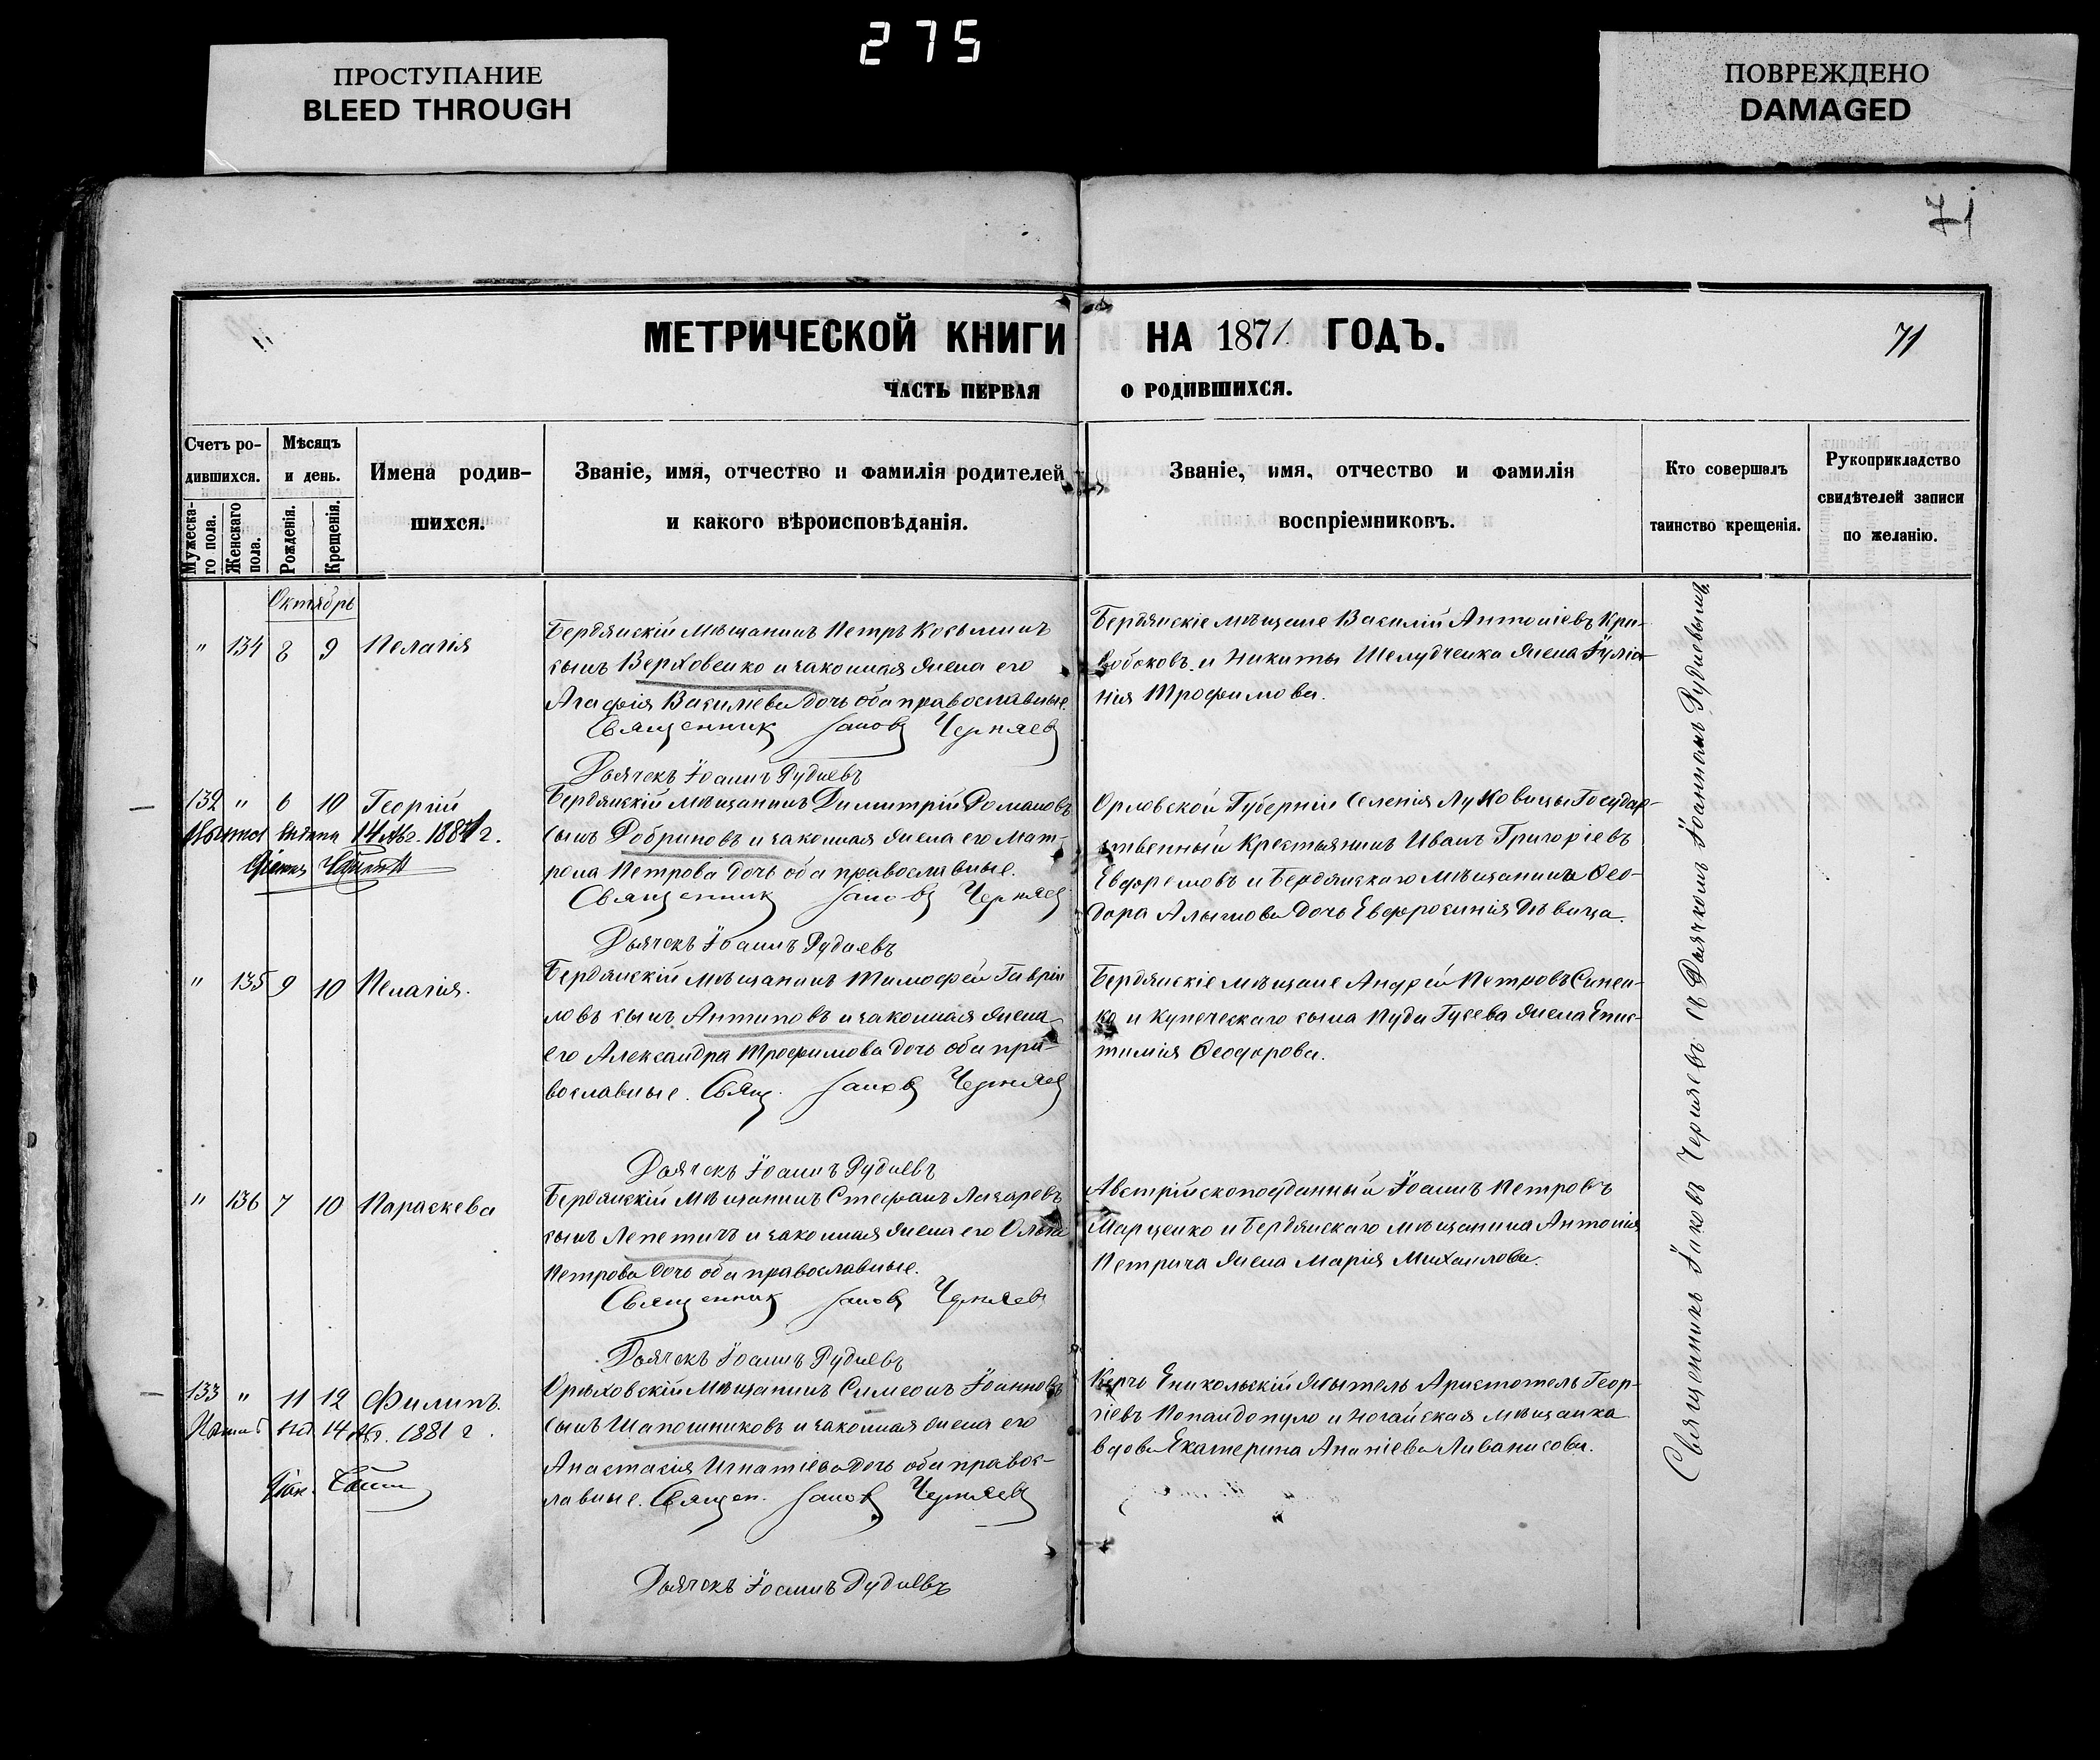 275
ПРОСТУПАНИЕ
BLEED THROUGH
ПОВРЕЖДЕНО
DAMAGED
71
МЕТРИЧЕСКОЙ КНИГИ НА 1871 ГОДЪ.
71
ЧАСТЬ ПЕРВАЯ О РОДИВШИХСЯ.
Счетъ ро-
дившихся.
Мужеска-
го пола.
Женскаго
пола.
Мѣсяцъ
и день.
Рожденія.
Крещенія.
Имена родив-
шихся.
Званіе, имя, отчество и фамилія родителей
и какого вѣроисповѣданія.
Званіе, имя, отчество и фамилія
воспріемниковъ.
Кто совершалъ
таинство крещенія.
Рукоприкладство
свидѣтелей записи
по желанію.
Октябрь
" 134 8 9 Пелагія
Бердянскій мѣщанинъ Петръ Косьминъ
сынъ Верховенко и законная жена его
Агафія Василіева дочь оба православные.
Священникъ Іаковъ Черняевъ
Дьячекъ Іоаннъ Рудневъ
Бердянскіе мѣщане Василій Антоніевъ Кри-
вобоковъ и Никиты Шелудченка жена Іуліа-
нія Трофимова.
132 " 6 10 Георгій
выдана 14 Авг. 1881 г.
Бердянскій мѣщанинъ Димитрій Романовъ
сынъ Добриновъ и законная жена его Мат-
рона Петрова дочь оба православные.
Священникъ Іаковъ Черняевъ
Дьячекъ Іоаннъ Рудневъ
Орловской Губерніи Селенія Луковицы Государ-
ственный Крестьянинъ Иванъ Григоріевъ
Евфремовъ и Бердянскаго мѣщанина Ѳео-
дора Алымова дочь Евфросинія дѣвица.
" 135 9 10 Пелагія.
Бердянскій мѣщанинъ Тимофей Гаврии-
ловъ сынъ Антиповъ и законная жена
его Александра Трофимова дочь оба пра-
вославные. Свящ. Іаковъ Черняевъ
Дьячекъ Іоаннъ Рудневъ
Бердянскіе мѣщане Андрей Петровъ Синен-
ко и купеческаго сына Пуда Гусева жена Епис-
тимія Ѳеодорова.
" 136 7 10 Параскева
Бердянскій мѣщанинъ Стефанъ Лазаревъ
сынъ Лепетичъ и законная жена его Ольга
Петрова дочь оба православные.
Священникъ Іаковъ Черняевъ
Дьячекъ Іоаннъ Рудневъ
Австрійскоподданный Іоаннъ Петровъ
Марценко и Бердянскаго мѣщанина Антонія
Петрича жена Марія Михаилова.
133 " 11 12 Филипъ.
выд 14 Авг. 1881 г.
Орѣховскій мѣщанинъ Симеонъ Іоанновъ
сынъ Шапошниковъ и законная жена его
Анастасія Игнатіева дочь оба правос-
лавные. Священ. Іаковъ Черняевъ
Дьячекъ Іоаннъ Рудневъ
Керчь Еникольскій житель Аристотель Геор-
гіевъ Попандопуло и Ногайская мѣщанка
вдова Екатерина Ананіева Ливанисова.
Священникъ Іаковъ Черняевъ съ Дьячкомъ Іоанномъ Рудневымъ